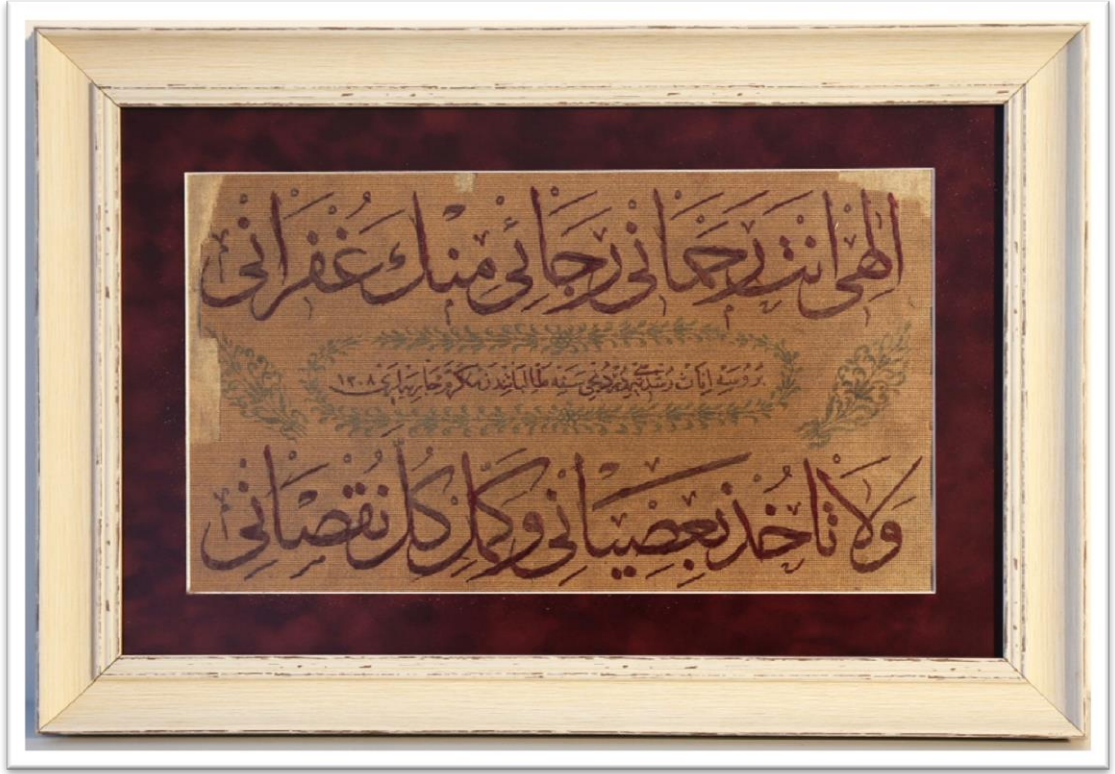 الهى انت رحمانى رجائى منك غفرانى
بروسه اناث رشديه سى سنه طالباتندن ١٣٠٨
ولا تأخذ بعصيانى وكمل كل نقصانى